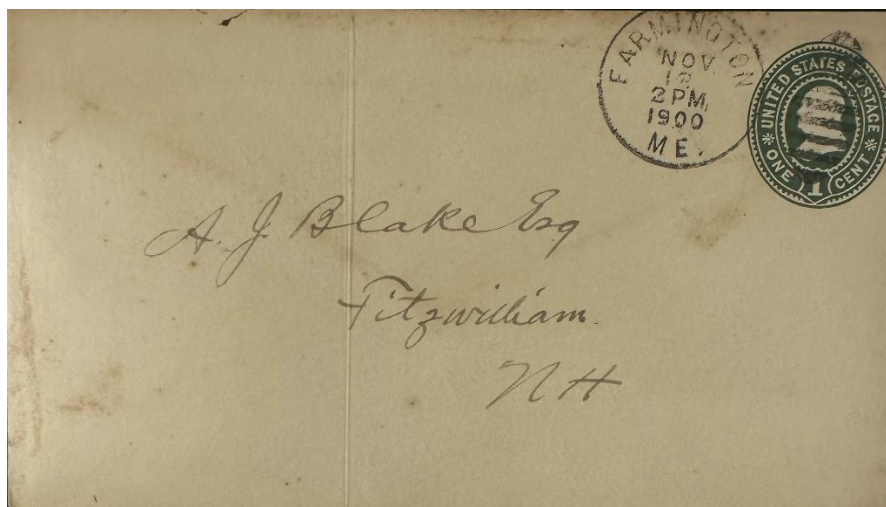 FARMINGTON
NOV.
2 PM.
1900
ME.
UNITED STATES POSTAGE
ONE 1 CENT
A. J. Blake Esq
Fitzwilliam.
N H